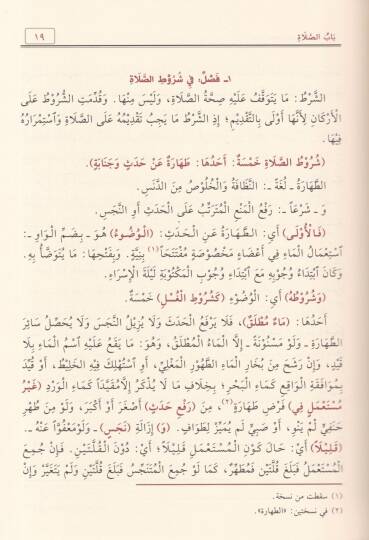 بَابُ الصَّلَاةِ
١٩
١ـ فَصْلٌ: فِي شُرُوطِ الصَّلَاةِ
الشَّرْطُ: مَا يَتَوَقَّفُ عَلَيْهِ صِحَّةُ الصَّلَاةِ، وَلَيْسَ مِنْهَا. وَقُدِّمَتِ الشُّرُوطُ عَلَى
الْأَرْكَانِ لِأَنَّهَا أَوْلَى بِالتَّقْدِيمِ؛ إِذِ الشَّرْطُ مَا يَجِبُ تَقْدِيمُهُ عَلَى الصَّلَاةِ وَٱسْتِمْرَارُهُ
فِيهَا.
(شُرُوطُ الصَّلَاةِ خَمْسَةٌ: أَحَدُهَا: طَهَارَةٌ عَنْ حَدَثٍ وَجَنَابَةٍ).
الطَّهَارَةُ ـ لُغَةً ـ: النَّظَافَةُ وَالْخُلُوصُ مِنَ الدَّنَسِ.
وَ ـ شَرْعاً ـ: رَفْعُ الْمَنْعِ الْمُتَرَتِّبِ عَلَى الْحَدَثِ أَوِ النَّجَسِ.
(فَالْأُولَى) أَيْ: الطَّهَارَةُ عَنِ الْحَدَثِ: (الْوُضُوءُ) هُوَ ـ بِضَمِّ الْوَاوِ ـ:
ٱسْتِعْمَالُ الْمَاءِ فِي أَعْضَاءٍ مَخْصُوصَةٍ مُفْتَتَحاً(١) بِنِيَّةٍ. وَبِفَتْحِهَا: مَا يُتَوَضَّأُ بِهِ.
وَكَانَ ٱبْتِدَاءُ وُجُوبِهِ مَعَ ٱبْتِدَاءِ وُجُوبِ الْمَكْتُوبَةِ لَيْلَةَ الْإِسْرَاءِ.
(وَشُرُوطُهُ) أَيِ: الْوُضُوْءِ (كَشُرُوطِ الْغُسْلِ) خَمْسَةٌ.
أَحَدُهَا: (مَاءٌ مُطْلَقٌ)، فَلَا يَرْفَعُ الْحَدَثَ وَلَا يُزِيلُ النَّجَسَ وَلَا يُحَصِّلُ سَائِرَ
الطَّهَارَةِ ـ وَلَوْ مَسْنُونَةً ـ إِلَّا الْمَاءُ الْمُطْلَقُ، وَهُوَ: مَا يَقَعُ عَلَيْهِ ٱسْمُ الْمَاءِ بِلَا
قَيْدٍ، وَإِنْ رَشَحَ مِنْ بُخَارِ الْمَاءِ الطَّهُورِ الْمَغْلِيِّ، أَوِ ٱسْتُهْلِكَ فِيهِ الْخَلِيطُ، أَوْ قُيِّدَ
بِمُوَافَقَةِ الْوَاقِعِ كَمَاءِ الْبَحْرِ؛ بِخِلَافِ مَا لَا يُذْكَرُ إِلَّا مُقَيَّداً كَمَاءِ الْوَرْدِ (غَيْرُ
مُسْتَعْمَلٍ فِي) فَرْضِ طَهَارَةٍ(٢)، مِنْ (رَفْعِ حَدَثٍ) أَصْغَرَ أَوْ أَكْبَرَ، وَلَوْ مِنْ طُهْرِ
حَنَفِيٍّ لَمْ يَنْوِ، أَوْ صَبِيٍّ لَمْ يُمَيِّزْ لِطَوَافٍ. (وَ) إِزَالَةِ (نَجَسٍ) ـ وَلَوْ مَعْفُوّاً عَنْهُ ـ.
(قَلِيلاً) أَيْ: حَالَ كَوْنِ الْمُسْتَعْمَلِ قَلِيلاً؛ أَيْ: دُونَ الْقُلَّتَيْنِ. فَإِنْ جُمِعَ
الْمُسْتَعْمَلُ فَبَلَغَ قُلَّتَيْنِ فَمُطَهِّرٌ، كَمَا لَوْ جُمِعَ الْمُتَنَجِّسُ فَبَلَغَ قُلَّتَيْنِ وَلَمْ يَتَغَيَّرْ وَإِنْ
(١) سقطت من نسخة.
(٢) في نسختين: «الطهارة».